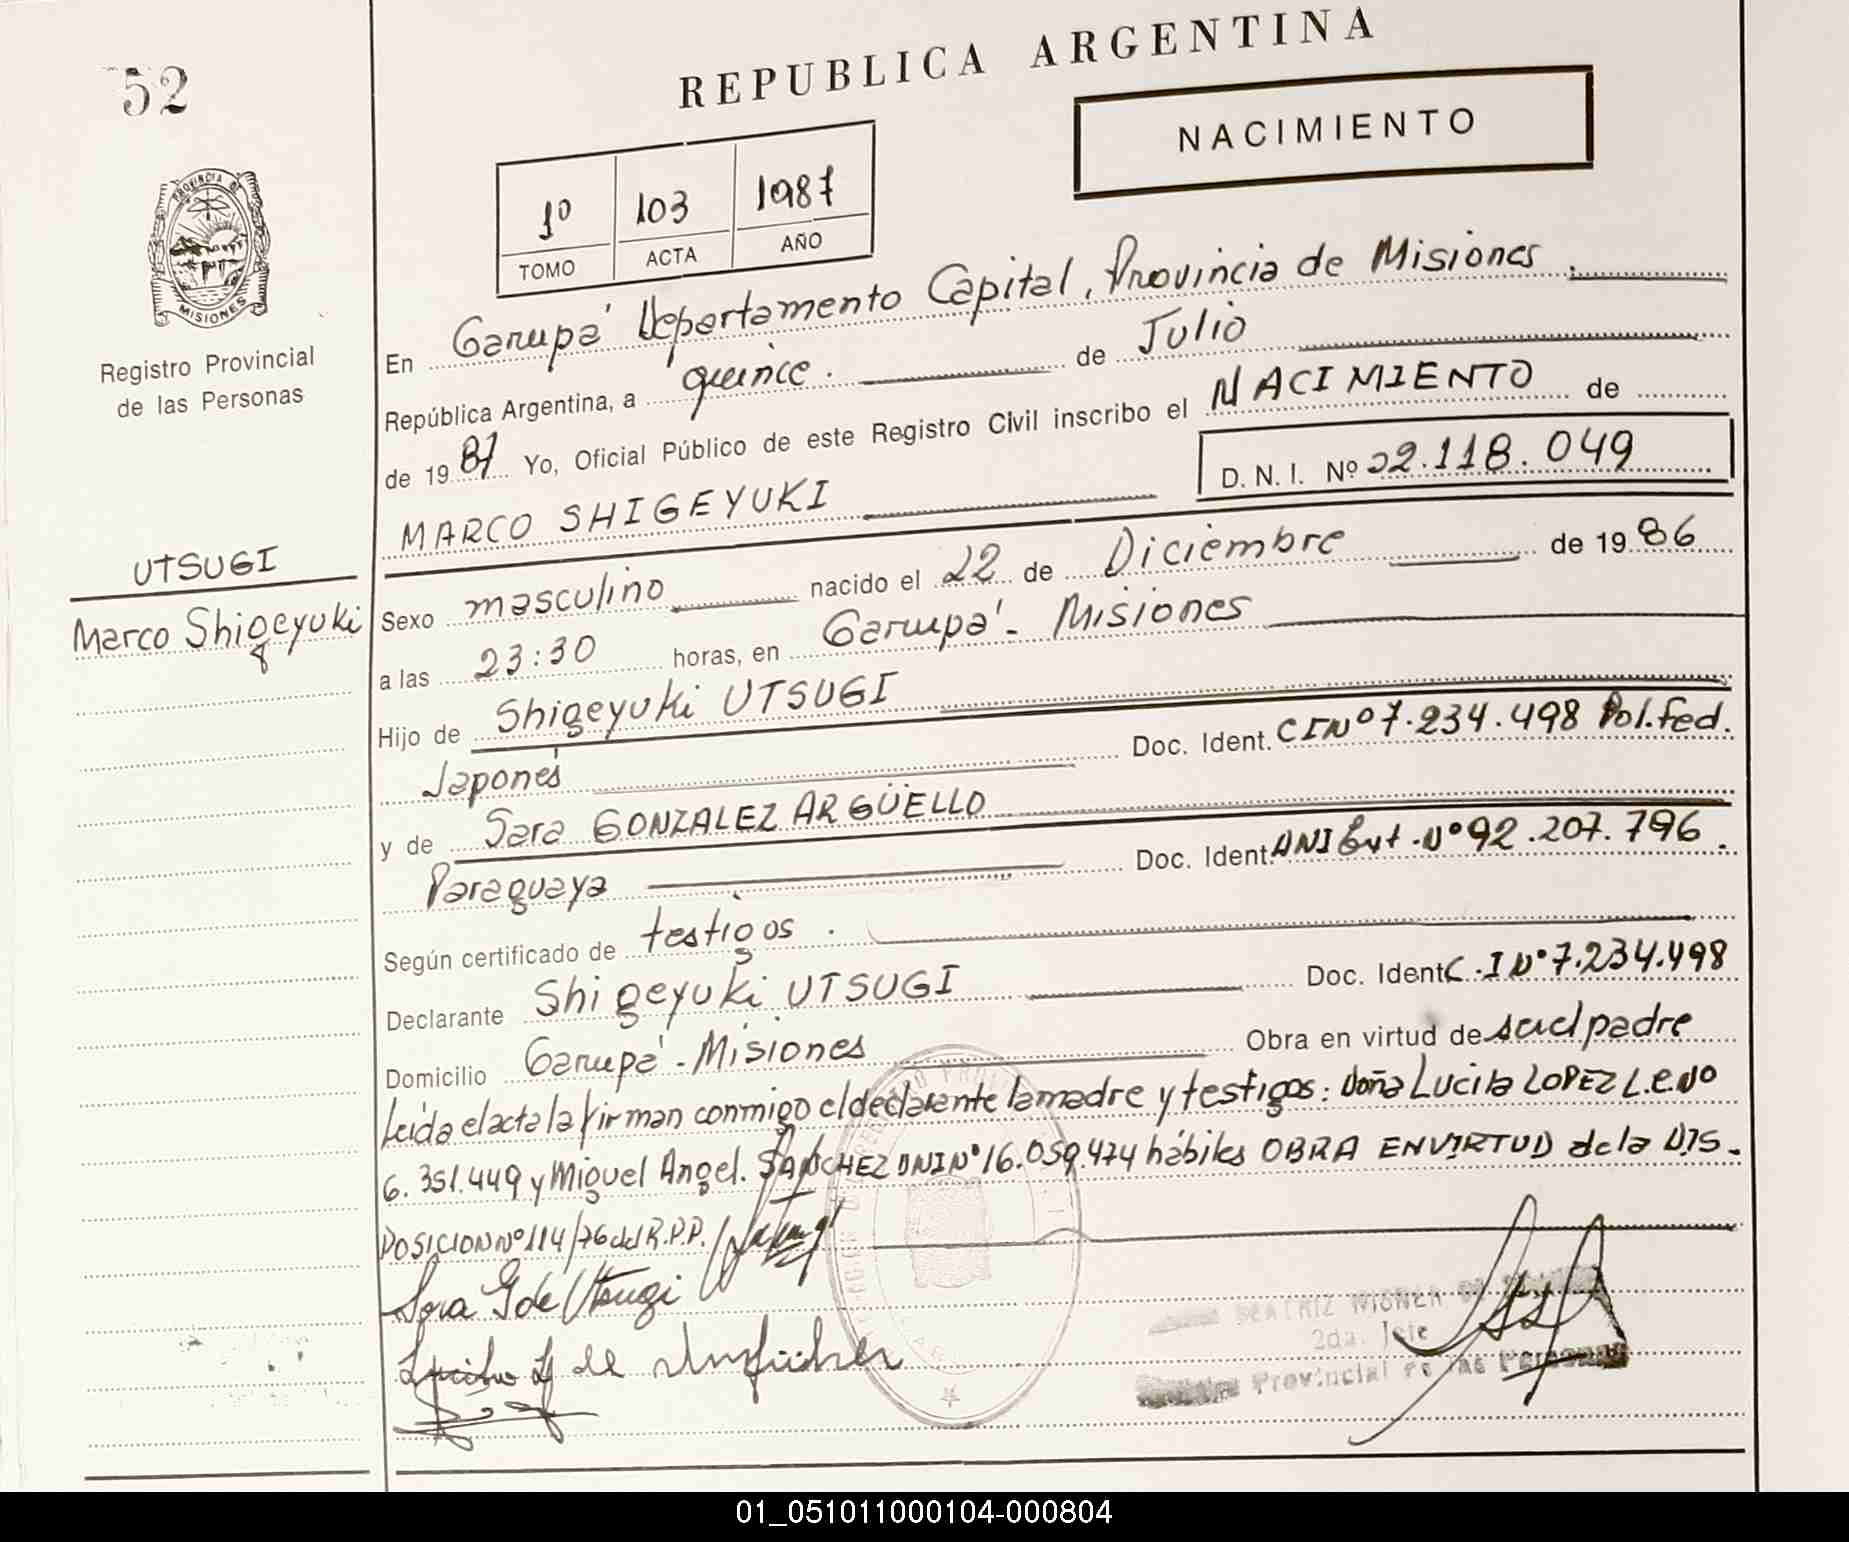 REPUBLICA ARGENTINA
52
NACIMIENTO
1º 103 1987
TOMO ACTA AÑO
PROVINCIA DE
MISIONES
Registro Provincial
de las Personas
En Garupá Departamento Capital, Provincia de Misiones.
República Argentina, a quince. de Julio
de 1987 Yo, Oficial Público de este Registro Civil inscribo el NACIMIENTO de
MARCO SHIGEYUKI D. N. I. Nº 22.118.049
UTSUGI
Marco Shigeyuki
Sexo masculino nacido el 22 de Diciembre de 1986
a las 23:30 horas, en Garupá - Misiones
Hijo de Shigeyuki UTSUGI
Japonés Doc. Ident. CI Nº 7.234.498 Pol. Fed.
y de Sara GONZALEZ ARGÜELLO
Paraguaya Doc. Ident. DNI Ext. Nº 92.207.796.
Según certificado de testigos.
Declarante Shigeyuki UTSUGI Doc. Ident C.I Nº 7.234.498
Domicilio Garupá - Misiones Obra en virtud de ser el padre
Leída el acta la firman conmigo el declarante la madre y testigos: doña Lucila LOPEZ L.e Nº
6.351.449 y Miguel Angel. SANCHEZ DNI Nº 16.059.474 hábiles OBRA EN VIRTUD de la DIS-
POSICION Nº 114/76 del R.P.P.
Sara G de Utsugi
2da. Jefe
Provincial de las Personas
01_051011000104-000804